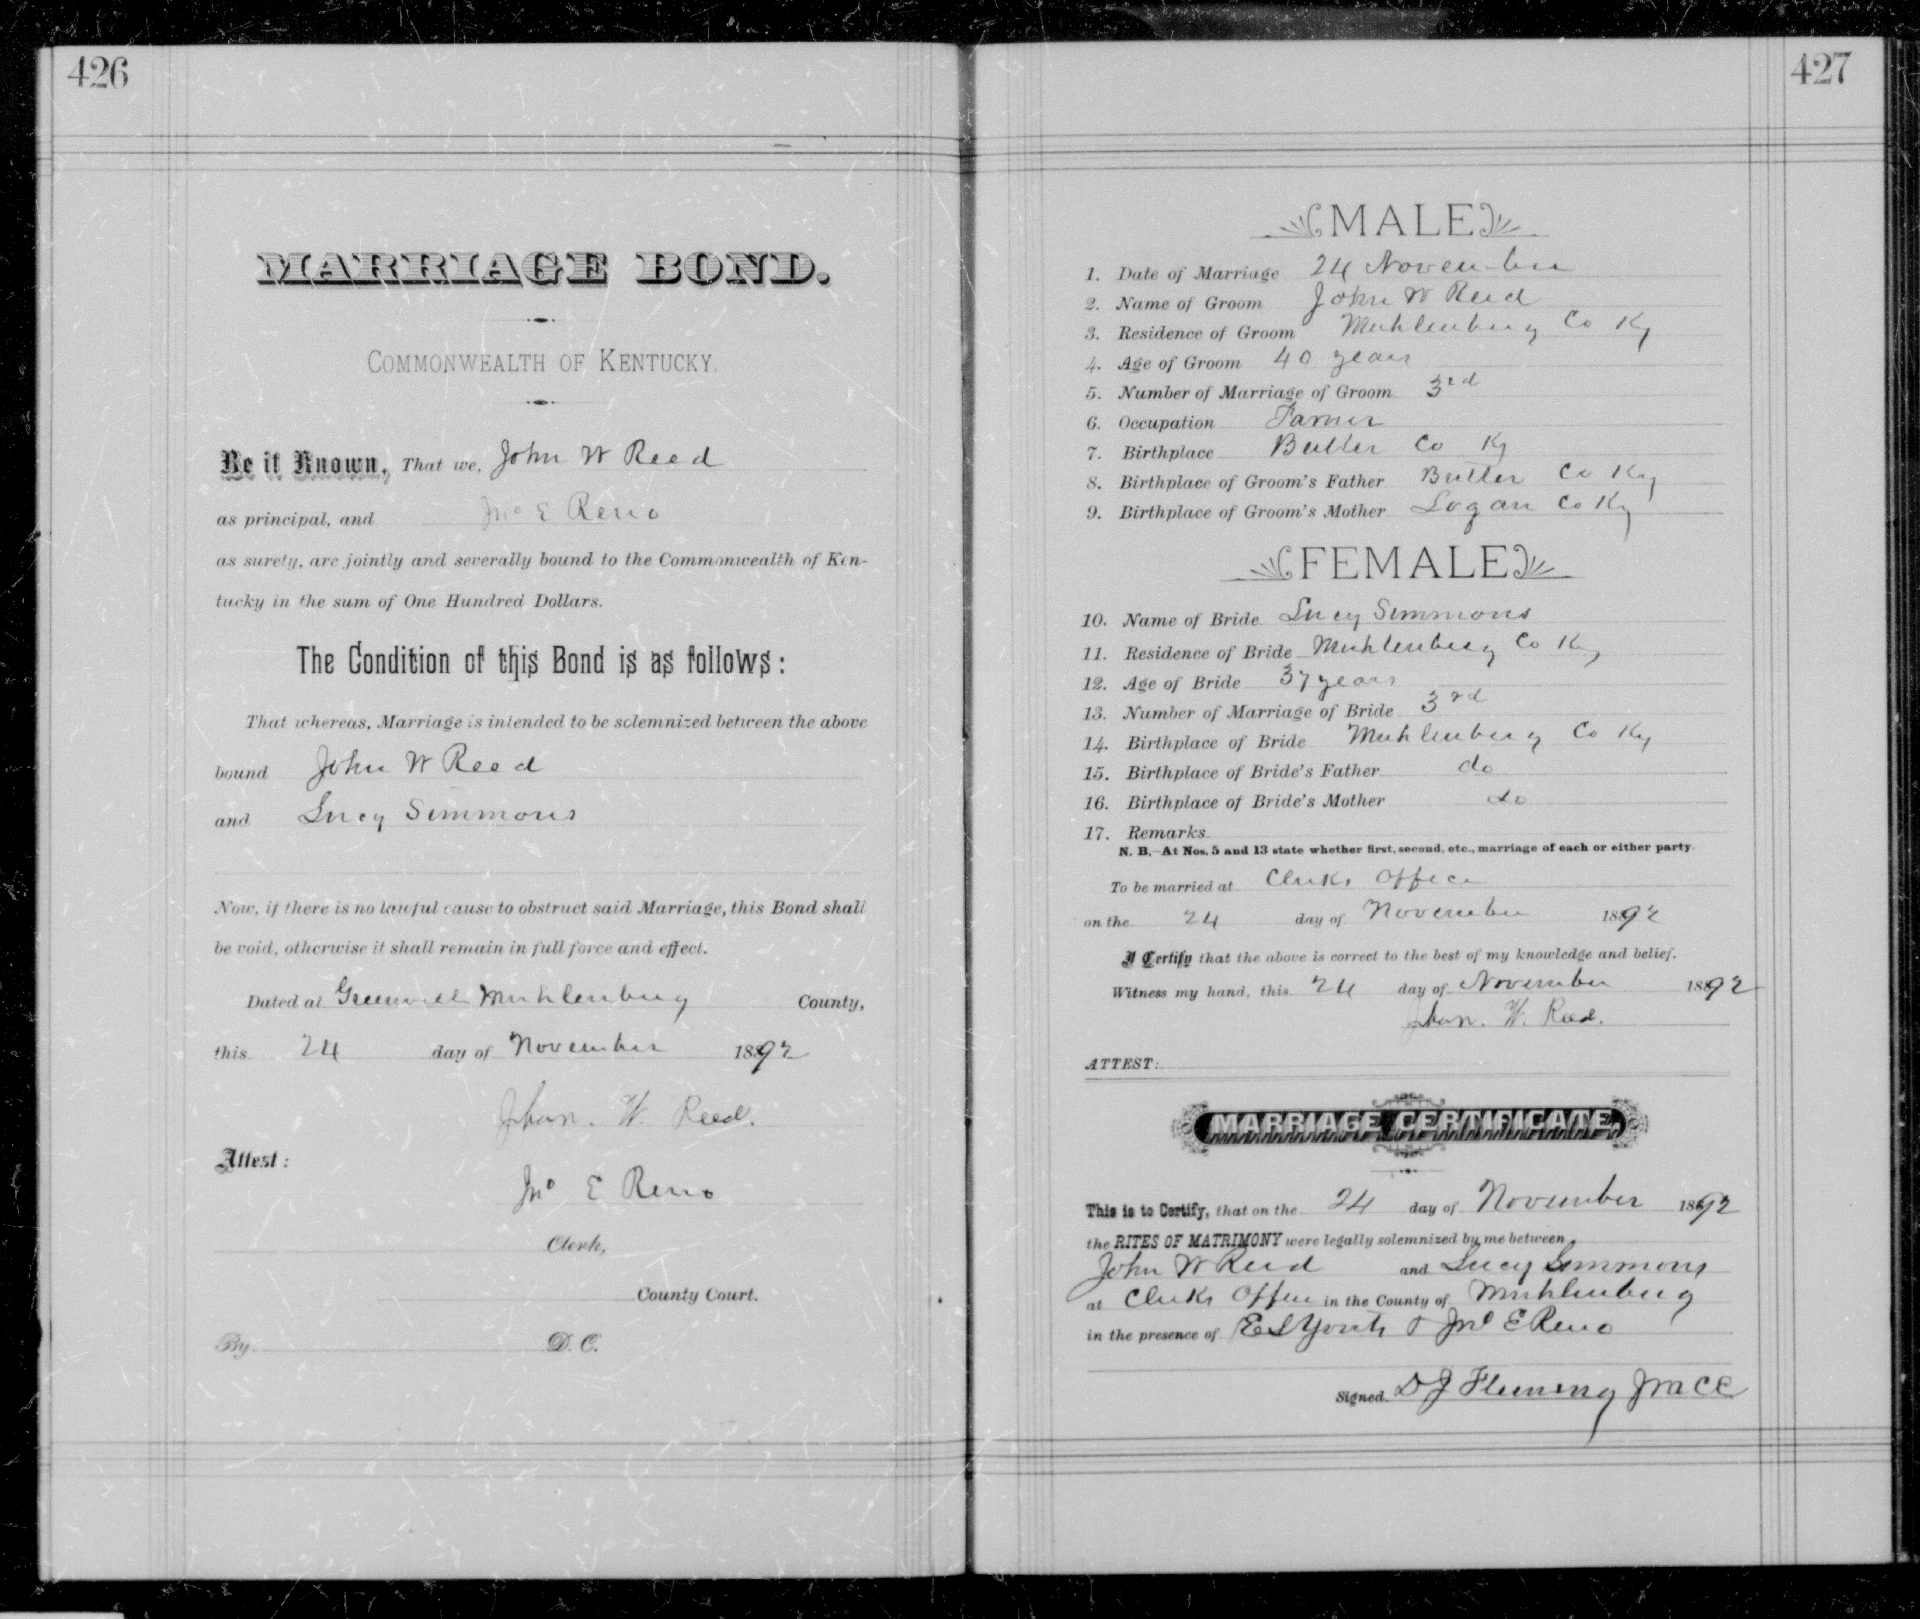 426
MARRIAGE BOND.
COMMONWEALTH OF KENTUCKY.
Be it Known, That we, John W Reed
as principal, and Jno E Reno
as surety, are jointly and severally bound to the Commonwealth of Ken-
tucky in the sum of One Hundred Dollars.
The Condition of this Bond is as follows:
That whereas, Marriage is intended to be solemnized between the above
bound John W Reed
and Lucy Simmons
Now, if there is no lawful cause to obstruct said Marriage, this Bond shall
be void, otherwise it shall remain in full force and effect.
Dated at Greenville Muhlenberg County,
this 24 day of November 1892
Jhon. W. Reed.
Attest:
Jno E Reno
Clerk,
County Court.
By D. C.
427
MALE
1. Date of Marriage 24 November
2. Name of Groom John W Reed
3. Residence of Groom Muhlenberg Co Ky
4. Age of Groom 40 years
5. Number of Marriage of Groom 3rd
6. Occupation Farmer
7. Birthplace Butler Co Ky
8. Birthplace of Groom's Father Butler Co Ky
9. Birthplace of Groom's Mother Logan Co Ky
FEMALE
10. Name of Bride Lucy Simmons
11. Residence of Bride Muhlenberg Co Ky
12. Age of Bride 37 years
13. Number of Marriage of Bride 3rd
14. Birthplace of Bride Muhlenberg Co Ky
15. Birthplace of Bride's Father do
16. Birthplace of Bride's Mother do
17. Remarks
N. B.—At Nos. 5 and 13 state whether first, second, etc., marriage of each or either party.
To be married at Clerks Office
on the 24 day of November 1892
I Certify that the above is correct to the best of my knowledge and belief.
Witness my hand, this 24 day of November 1892
Jhon. W. Reed.
ATTEST:
MARRIAGE CERTIFICATE.
This is to Certify, that on the 24 day of November 1892
the RITES OF MATRIMONY were legally solemnized by me between
John W Reed and Lucy Simmons
at Clerks Office in the County of Muhlenberg
in the presence of E S Yonts & Jno E Reno
Signed D J Fleming J M C C